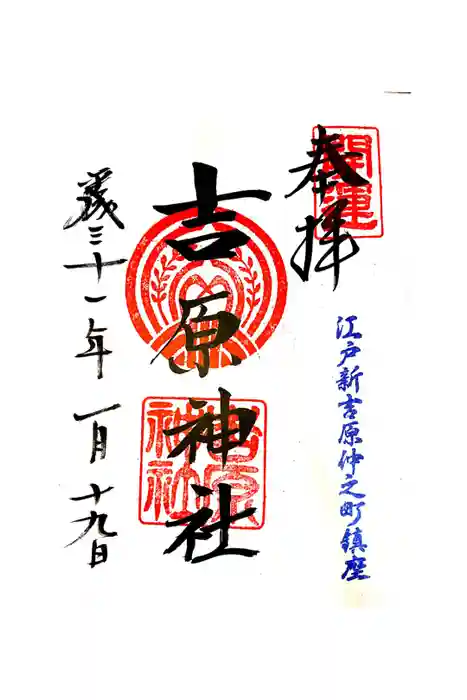 奉拝
開運
江戸新吉原仲之町鎮座
吉原神社
吉原神社
平成三十一年一月十九日